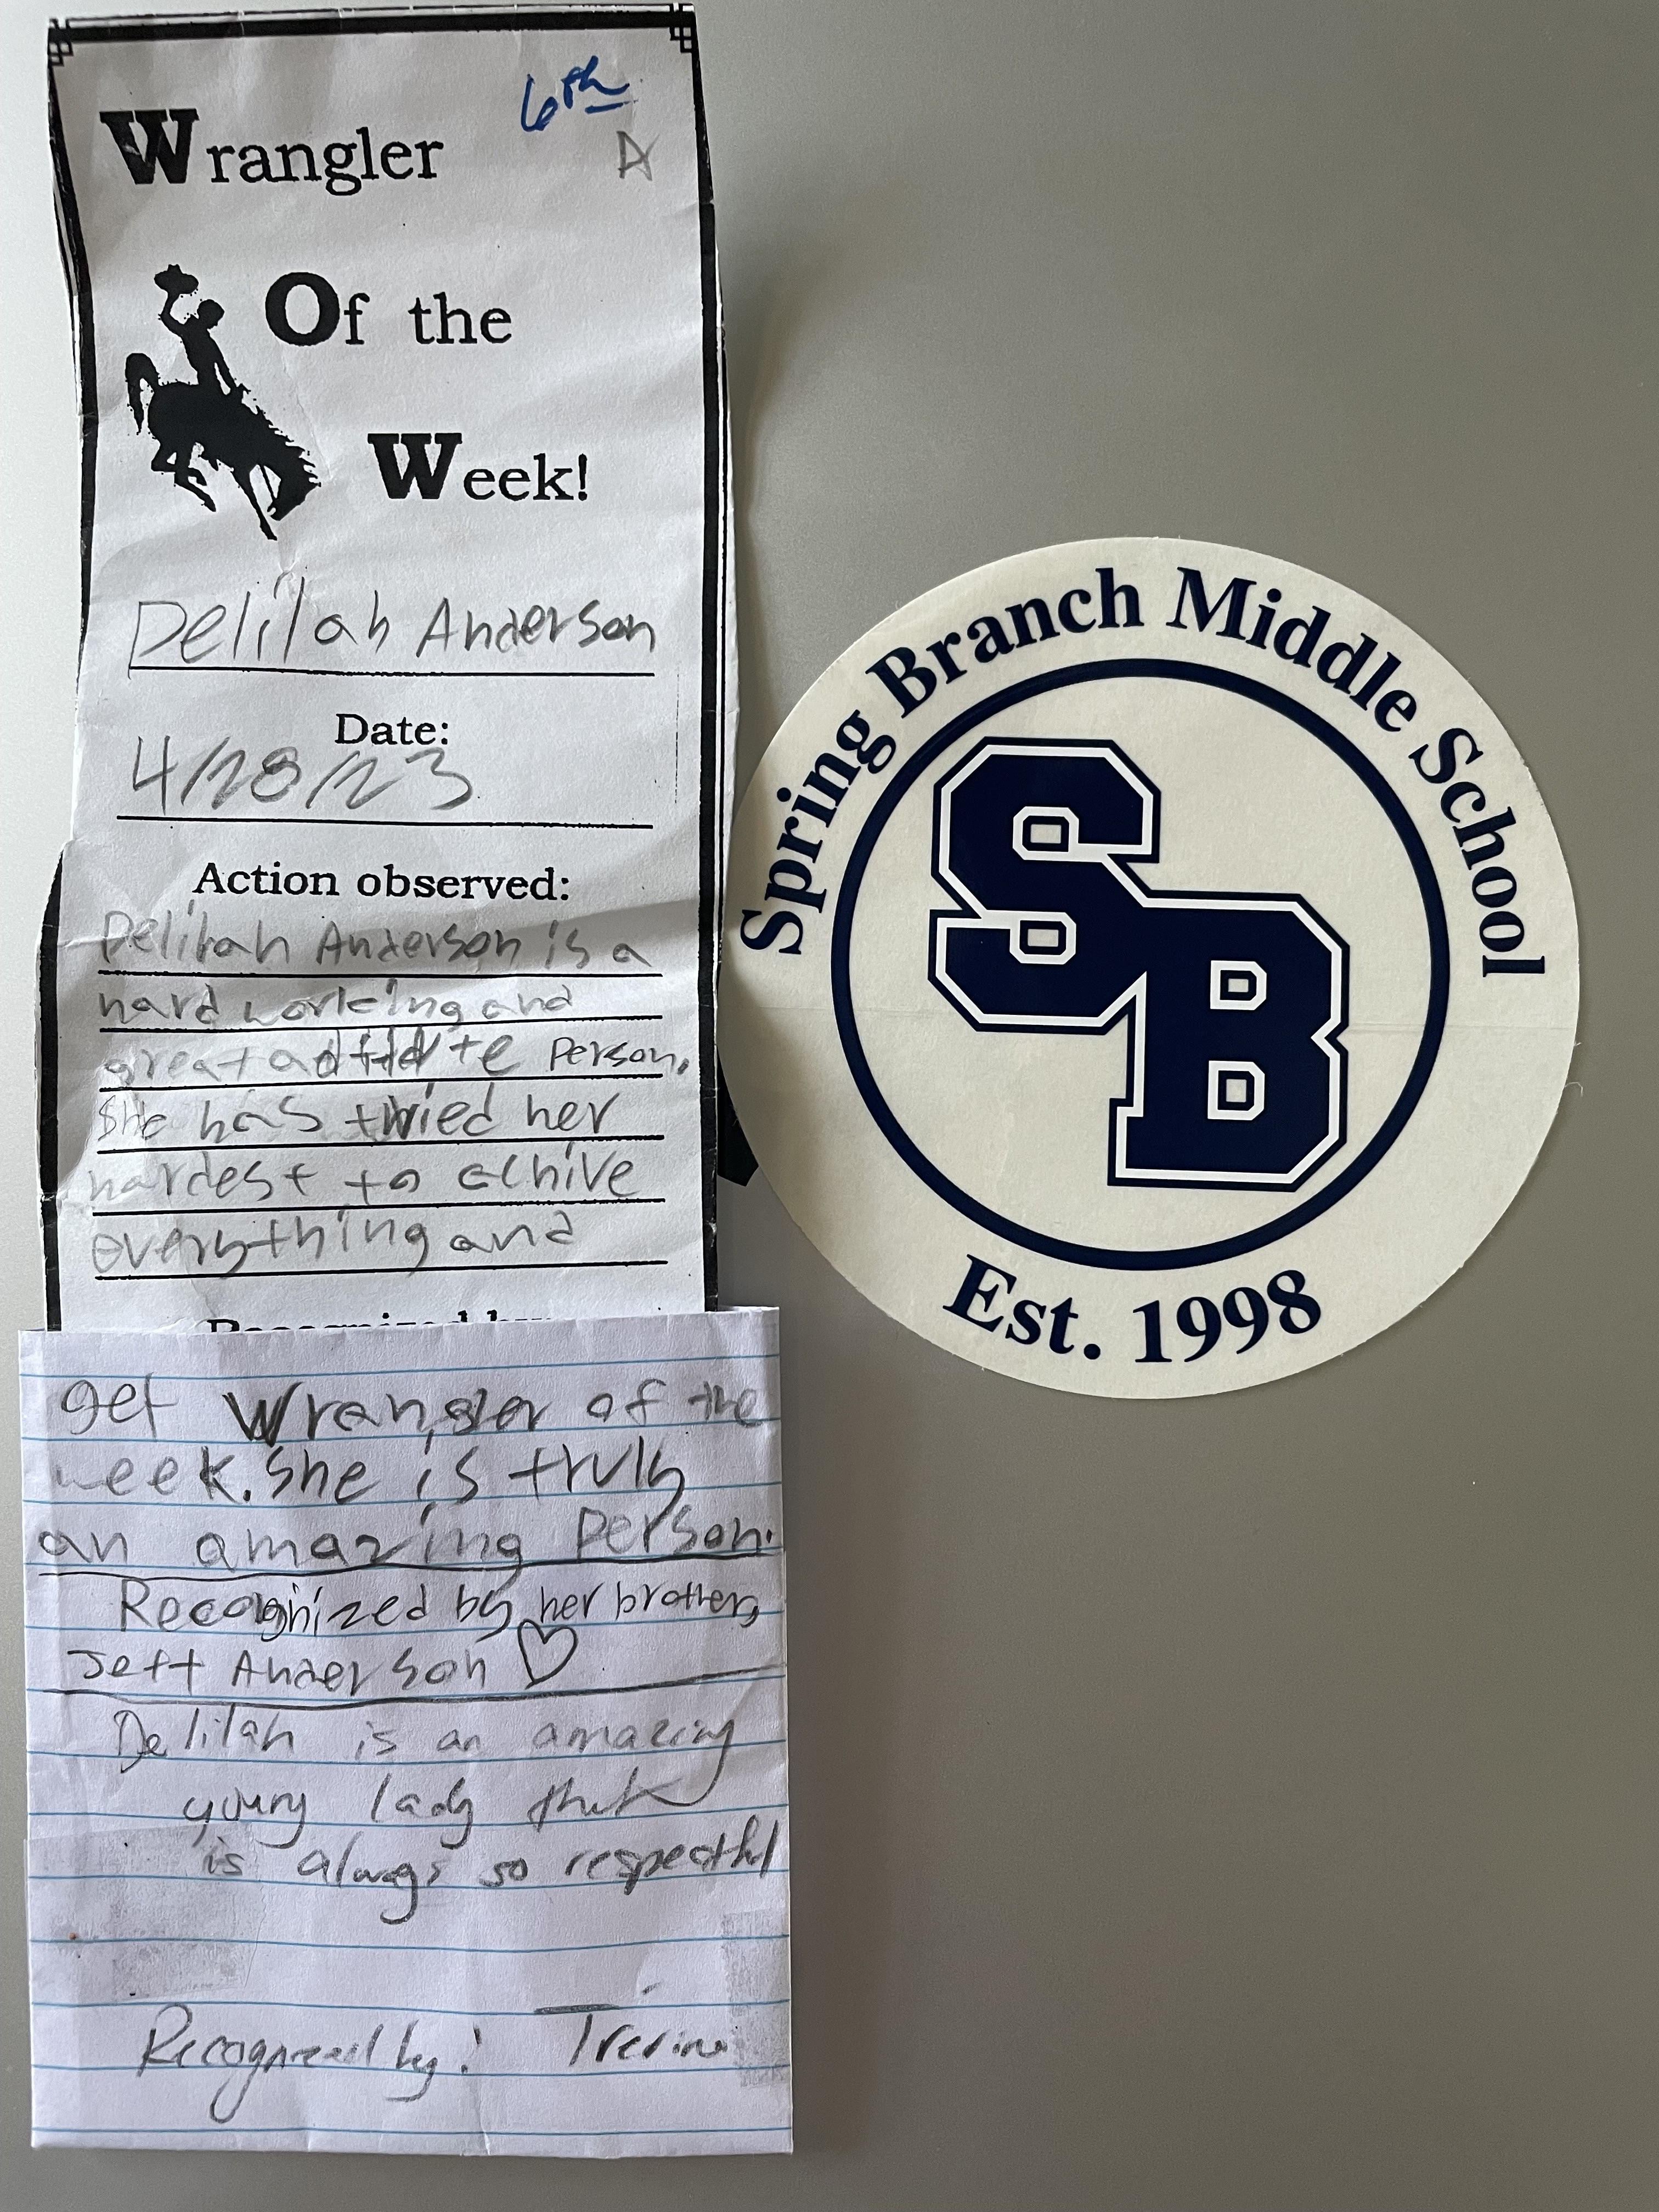 6th
A
Wrangler
Of the
Week!
Delilah Anderson
Date:
4/28/23
Action observed:
Delilah Anderson is a
hard working and
great person.
She has tried her
hardest to achive
everything and
Recognized by
get Wrangler of the
week. She is truly
an amazing person.
Recognized by her brother,
Jeff Anderson
Delilah is an amazing
young lady that
is always so respectful
Recognized by:
Spring Branch Middle School
SB
Est. 1998